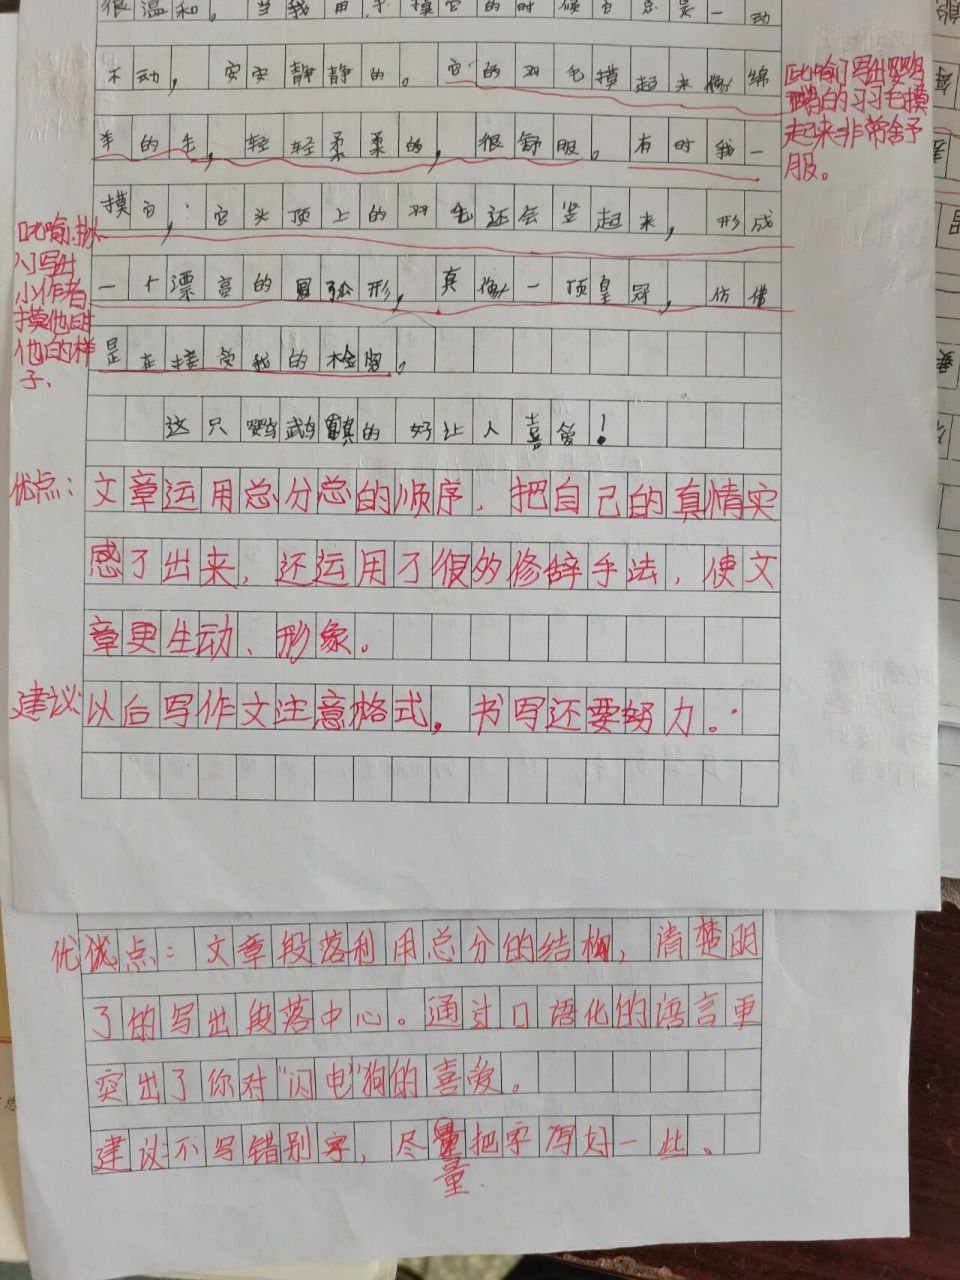 很温和。当我用手摸它的时候它总是一动
不动，安安静静的。它的羽毛摸起来像绵
羊的毛，轻轻柔柔的，很舒服。有时我一
摸它，它头顶上的羽毛还会竖起来，形成
一个漂亮的弧形，真像一顶皇冠，仿佛
是在接受我的检阅。
这只鹦鹉真的好让人喜爱！
比喻写出鹦鹉
鹉的羽毛摸
起来非常舍予
服。
比喻、拟
人写出
小作者
摸他时
他的样
子、
优点：文章运用总分总的顺序，把自己的真情实
感了出来，还运用了很的修辞手法，使文
章更生动、形象。
建议：以后写作文注意格式，书写还要努力。
优优点：文章段落利用总分的结构，清楚明
了的写出段落中心。通过口语化的语言更
突出了你对“闪电”狗的喜爱。
建议不写错别字，尽量把字写好一些。
量